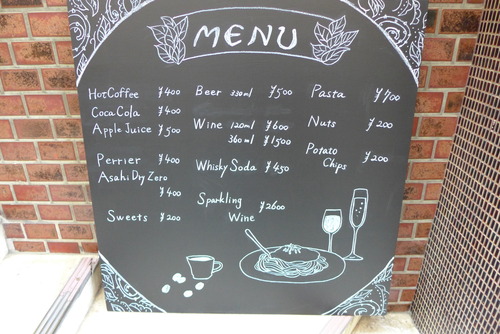 MENU
HotCoffee ¥400
CocaCola ¥400
Apple Juice ¥500
Perrier ¥400
Asahi Dry Zero
¥400
Sweets ¥200
Beer 330ml ¥500
Wine 120ml ¥600
360ml ¥1500
Whisky Soda ¥450
Sparkling
Wine ¥2600
Pasta ¥700
Nuts ¥200
Potato
Chips ¥200